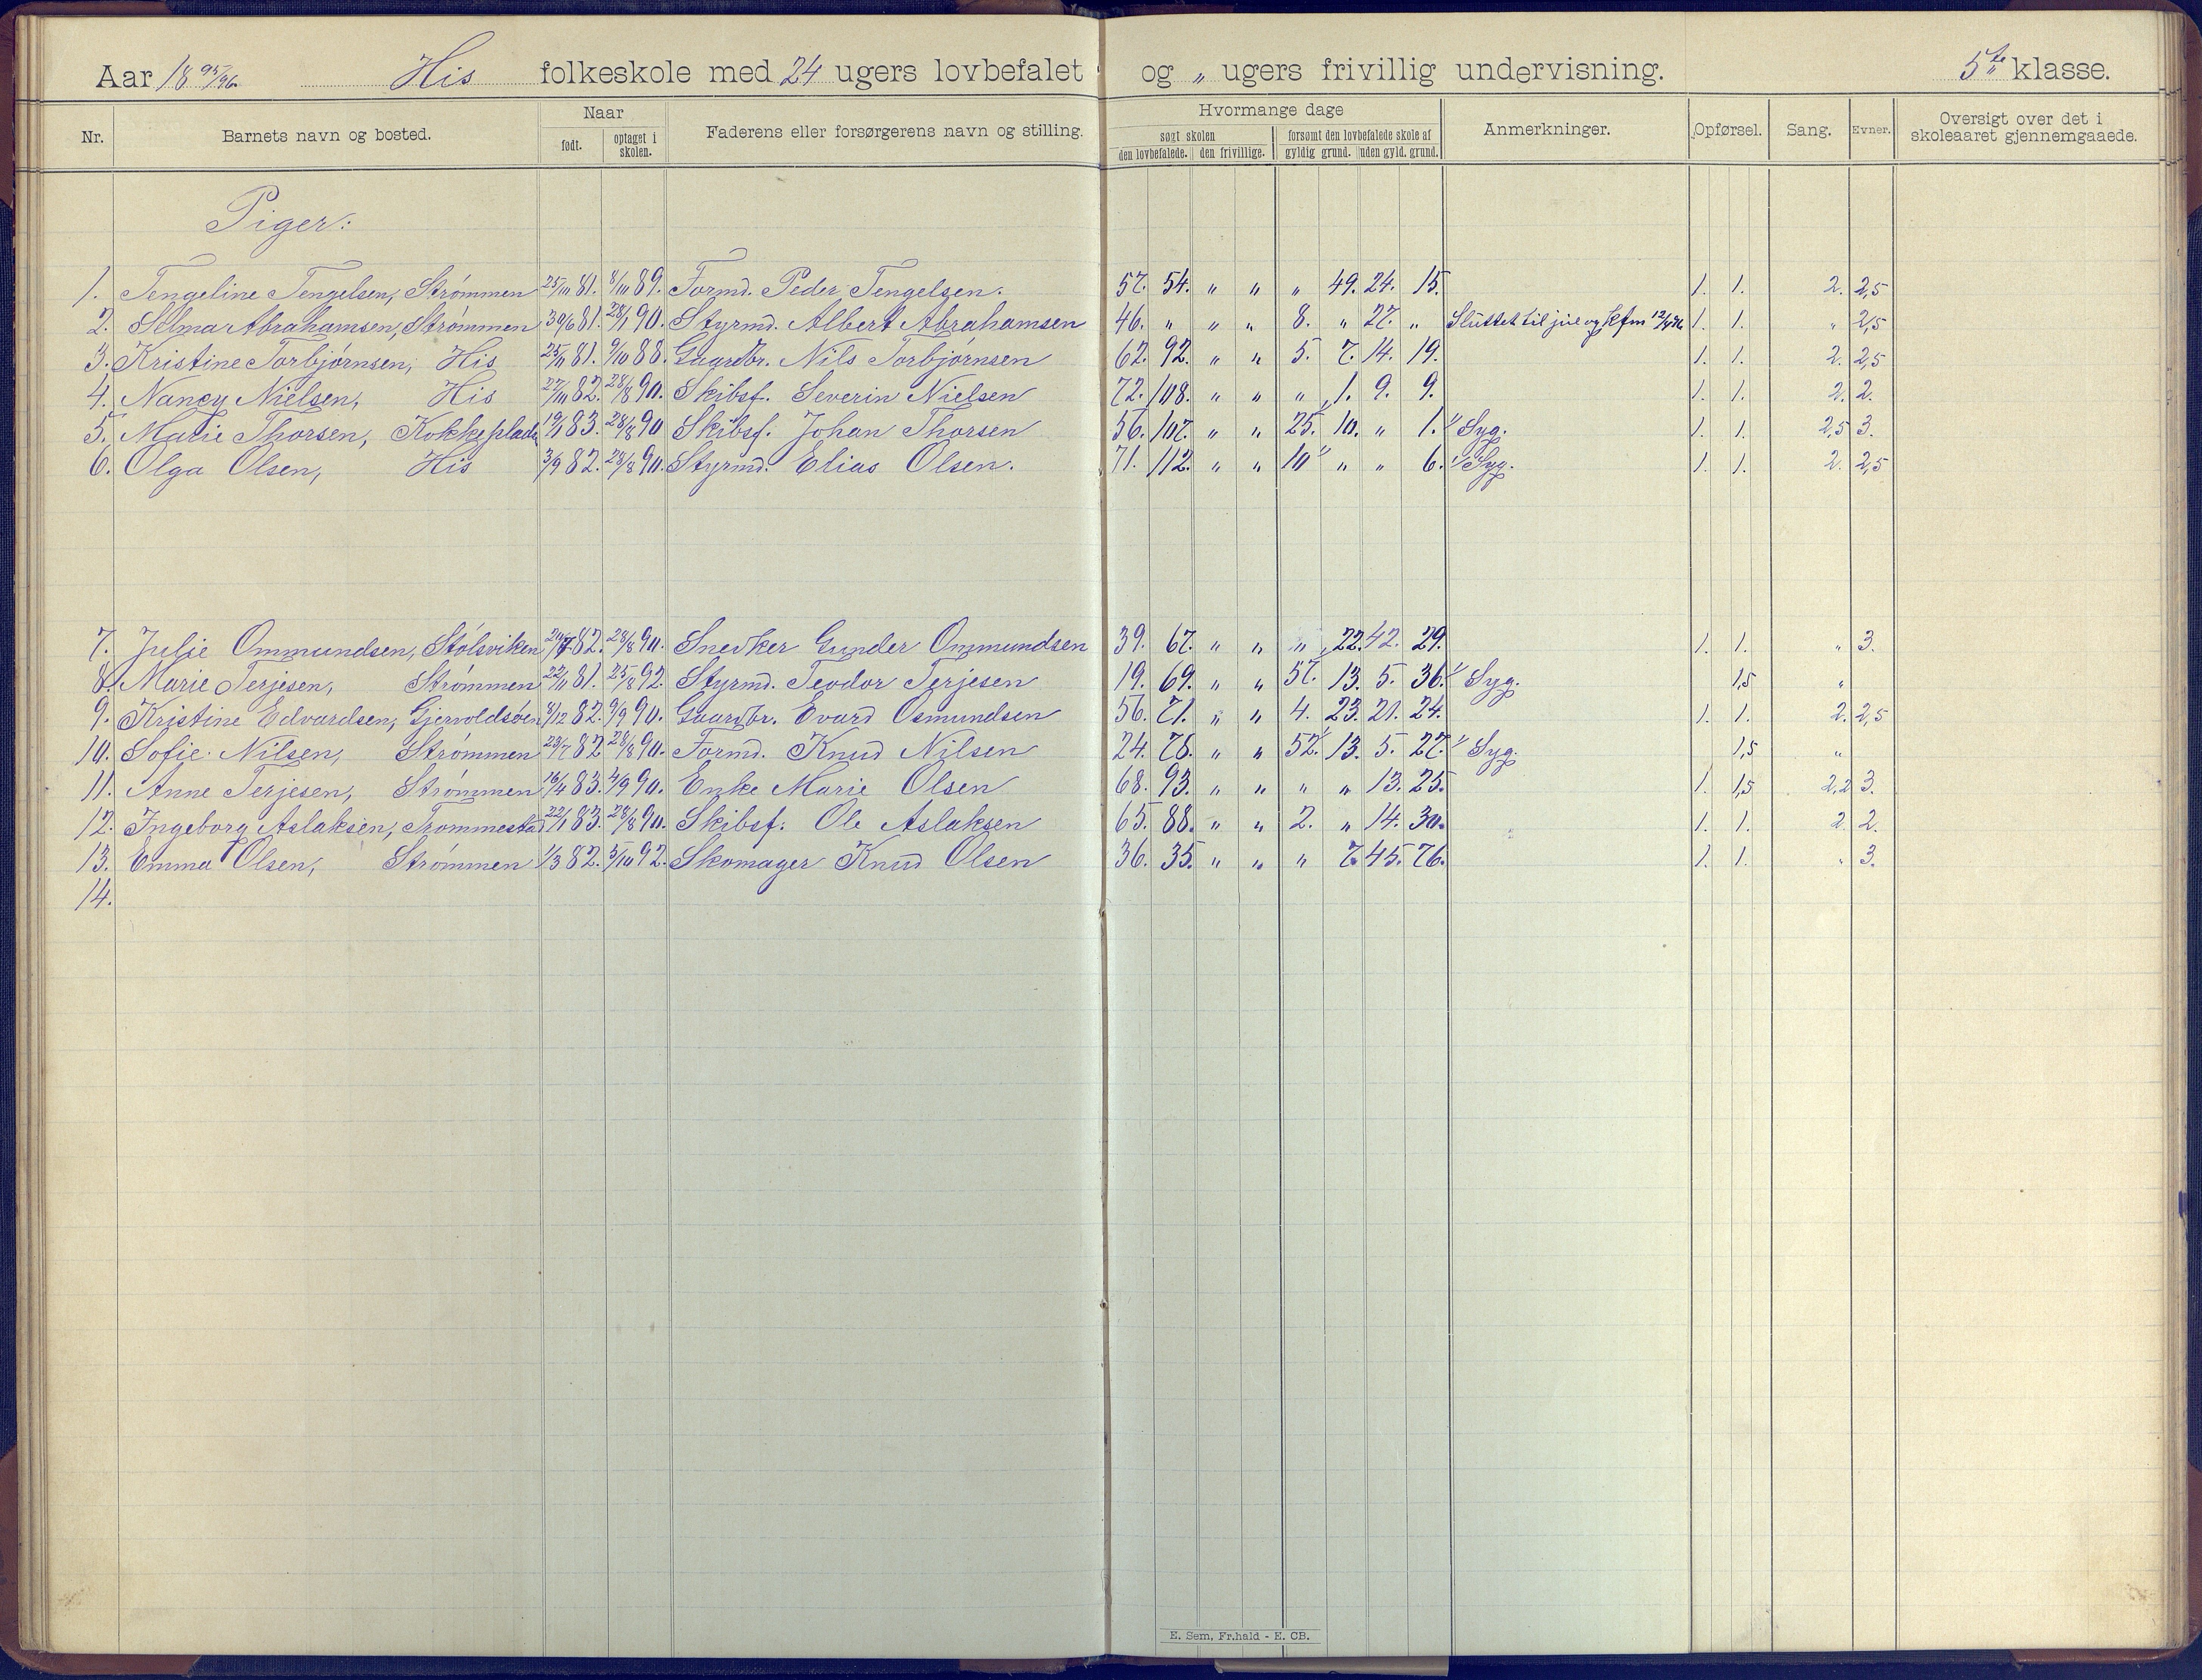 Aar 1895/96. His folkeskole med 24 ugers lovbefalet og „ ugers frivillig undervisning. 5te klasse.
Nr. Barnets navn og bosted. Naar født. optaget i skolen. Faderens eller forsørgerens navn og stilling. Hvormange dage søgt skolen den lovbefalede. den frivillige. forsømt den lovbefalede skole af gyldig grund. uden gyld. grund. Anmerkninger. Opførsel. Sang. Evner. Oversigt over det i skoleaaret gjennemgaaede.
Piger:
1. Tengeline Tengelsen, Strømmen 25/10 81. 8/10 89. Formd. Peder Tengelsen. 57. 54. „ „ „ 49. 24. 15. 1. 1. 2. 2,5
2. Selma Abrahamsen, Strømmen 30/6 81. 28/1 90. Styrmd. Albert Abrahamsen 46. „ „ „ 8. „ 27. „ Sluttet til jul og kfm 12/4 96. 1. 1. „ 2,5
3. Kristine Torbjørnsen, His 25/11 81. 9/10 88. Gaardbr. Nils Torbjørnsen 62. 92. „ „ 5. 7. 14. 19. 1. 1. 2. 2,5
4. Nancy Nielsen, His 27/10 82. 28/8 90. Skibsf. Severin Nielsen 72. 108. „ „ „ 1. 9. 9. 1. 1. 2. 2.
5. Marie Thorsen, Kokkeplads 19/1 83. 28/8 90 Skibsf. Johan Thorsen 56. 107. „ „ 25. 10. „ 1. Syg. 1. 1. 2,5 3.
6. Olga Olsen, His 3/9 82. 28/8 90. Styrmd. Elias Olsen. 71. 112. „ „ 10 „ „ 6. Syg. 1. 1. 2. 2,5
7. Julie Ommundsen, Stølsviken 82. 28/8 90. Snedker Gunder Ommundsen 39. 67. „ „ „ 22. 42. 29. 1. 1. „ 3.
8. Marie Terjesen, Strømmen 22/11 81. 25/8 92. Styrmd. Teodor Terjesen 19. 69. „ „ 57. 13. 5. 36. Syg. 1,5 „
9. Kristine Edvardsen, Gjervoldsøen 8/12 82. 9/9 90. Gaardbr. Evard Osmundsen 56. 71. „ „ 4. 23. 21. 24. 1. 1. 2. 2,5
10. Sofie Nilsen, Strømmen 23/7 82. 28/8 90. Formd. Knud Nilsen 24. 78. „ „ 52. 13. 5. 27. Syg. 1,5 „
11. Anne Terjesen, Strømmen 16/4 83. 4/9 90. Enke Marie Olsen 68. 93. „ „ „ „ 13. 25. 1. 1,5 2,2 3.
12. Ingeborg Aslaksen, Trommestad 22/1 83. 28/8 90. Skibsf. Ole Aslaksen 65. 88. „ „ 2. „ 14. 30. 1. 1. 2. 2.
13. Emma Olsen, Strømmen 1/3 82. 5/10 92. Skomager Knud Olsen 36. 35. „ „ „ 7. 45. 76. 1. 1. „ 3.
14.
E. Sem, Fr.hald - E. CB.